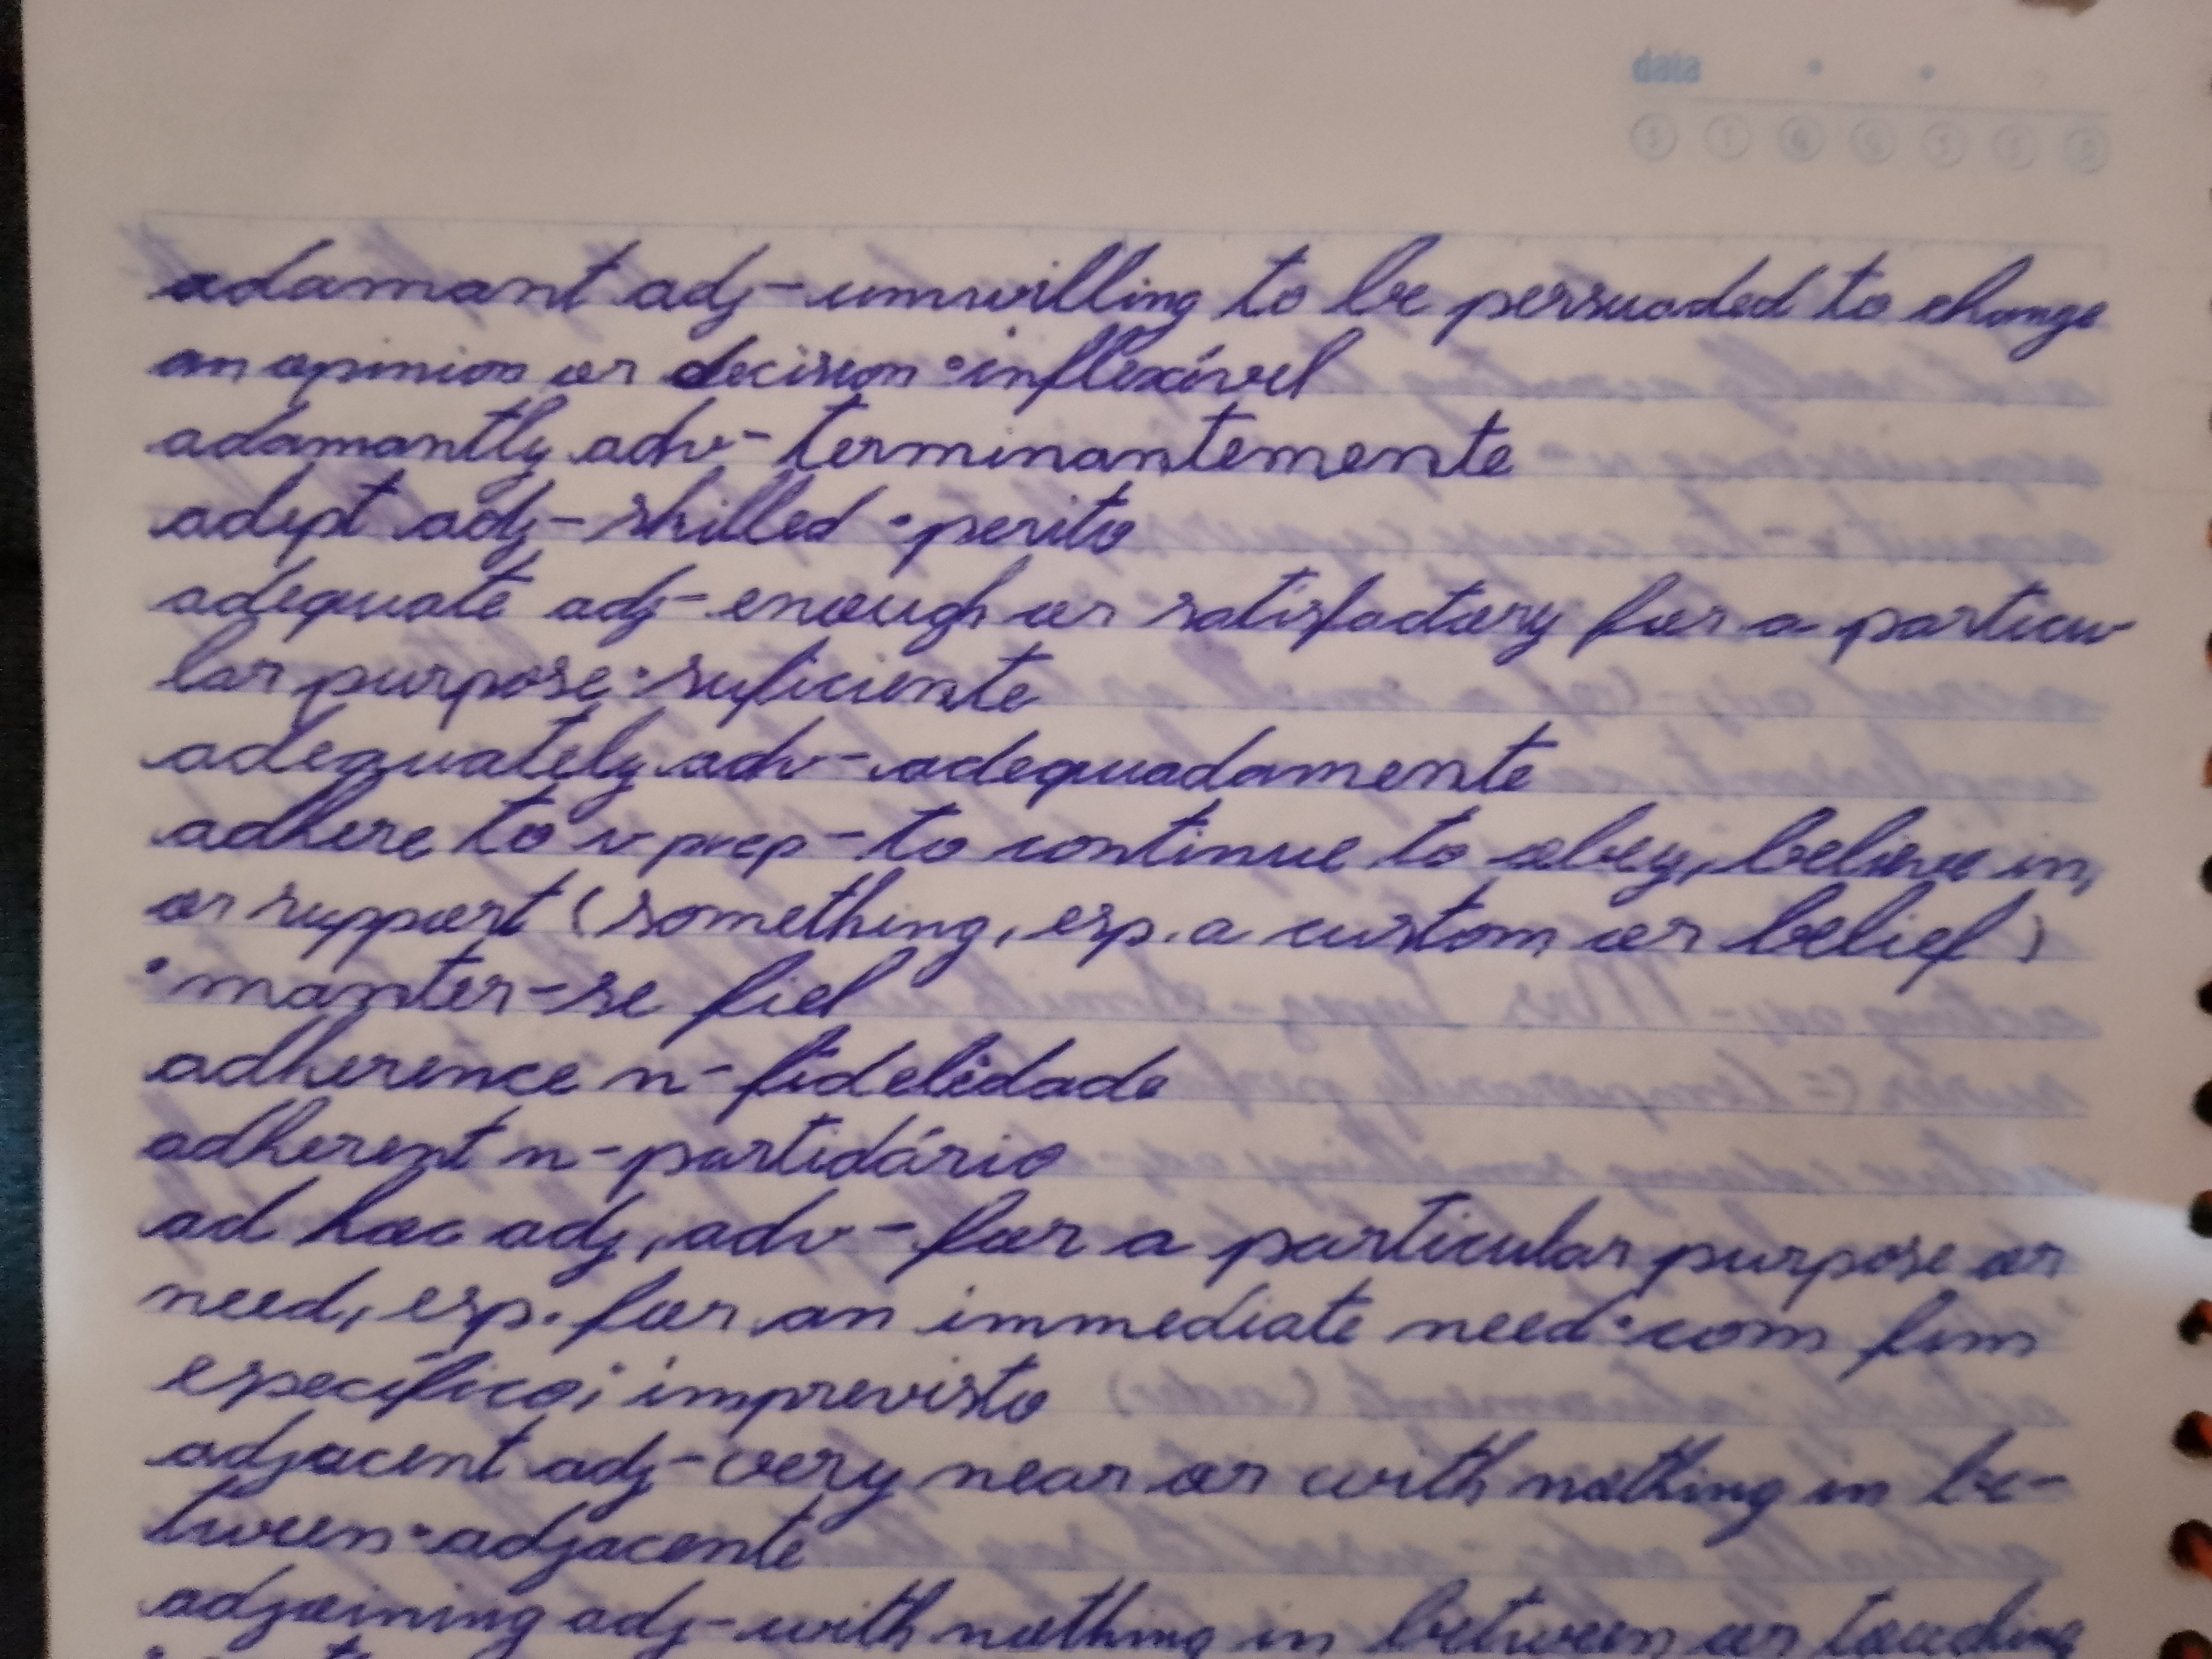 data
adamant adj - unwilling to be persuaded to change
an opinion or decision • inflexível
adamantly adv - terminantemente
adept adj - skilled • perito
adequate adj - enough or satisfactory for a particu-
lar purpose • suficiente
adequately adv - adequadamente
adhere to v prep - to continue to obey, believe in,
or support (something, esp. a custom or belief)
• manter-se fiel
adherence n - fidelidade
adherent n - partidário
ad hoc adj, adv - for a particular purpose or
need, esp. for an immediate need • com fim
específico; imprevisto
adjacent adj - very near or with nothing in be-
tween • adjacente
adjoining adj - with nothing in between or touching